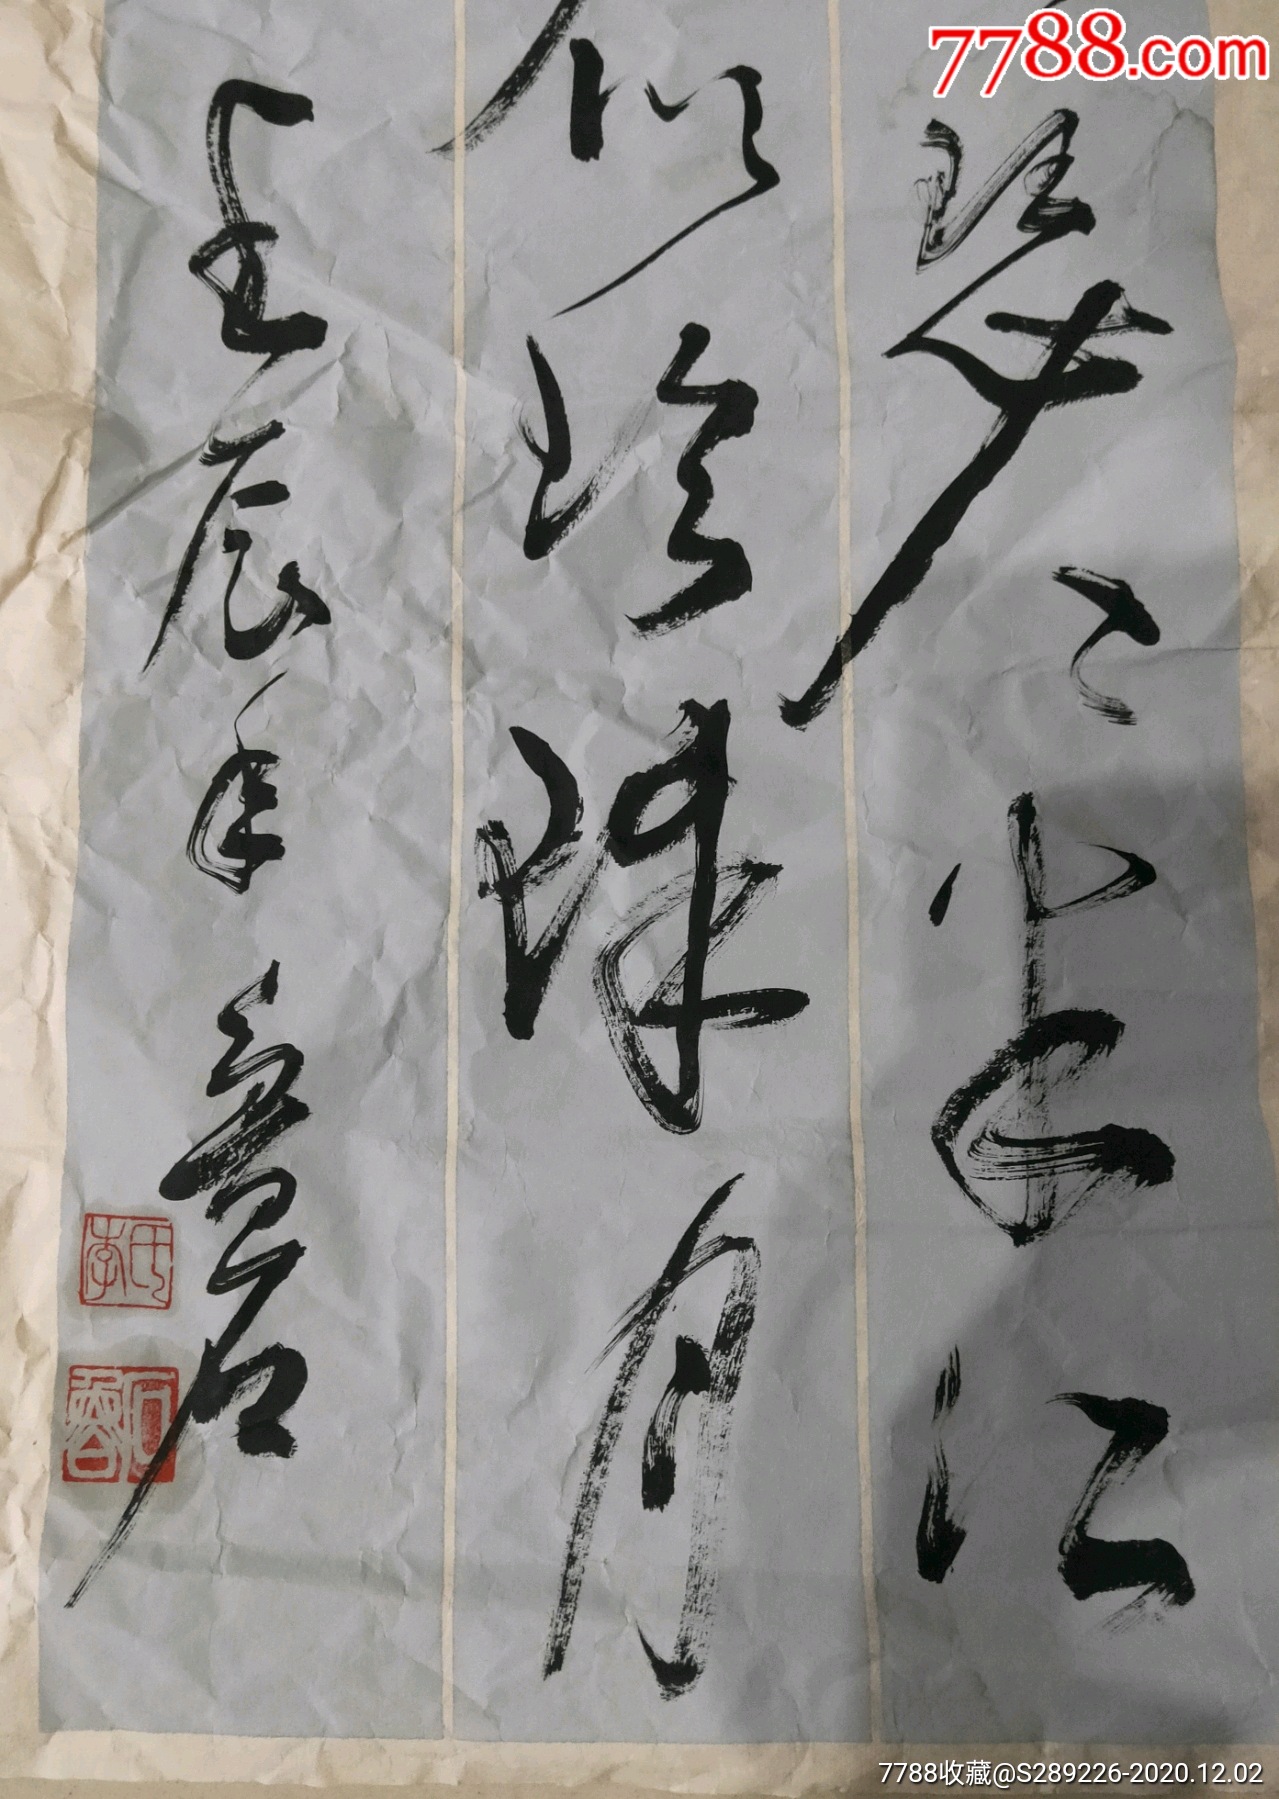 7788.com
瑟々半江
似珍珠月
壬辰年
7788收藏@S289226-2020.12.02